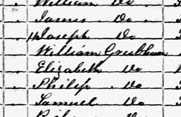 William Do
James Do
Joseph Do
William Grubham
Elizabeth Do
Philip Do
Samuel Do